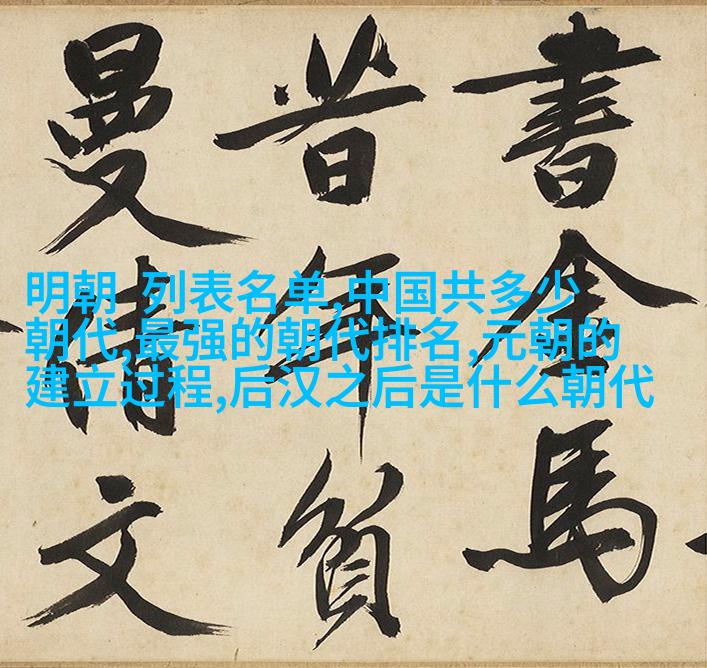 明朝 列表名单,中国共多少
朝代,最强的朝代排名,元朝的
建立过程,后汉之后是什么朝代
書金馬
昔年貧
曼倩文